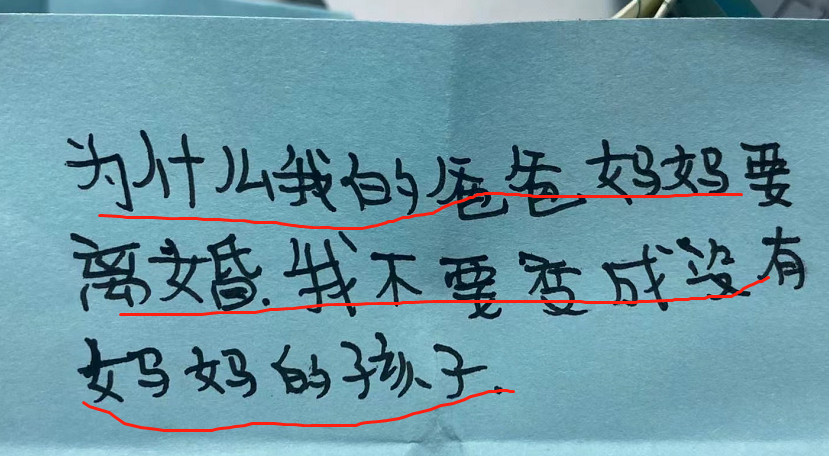 为什么我的爸爸妈妈要
离婚.我不要变成没有
妈妈的孩子.